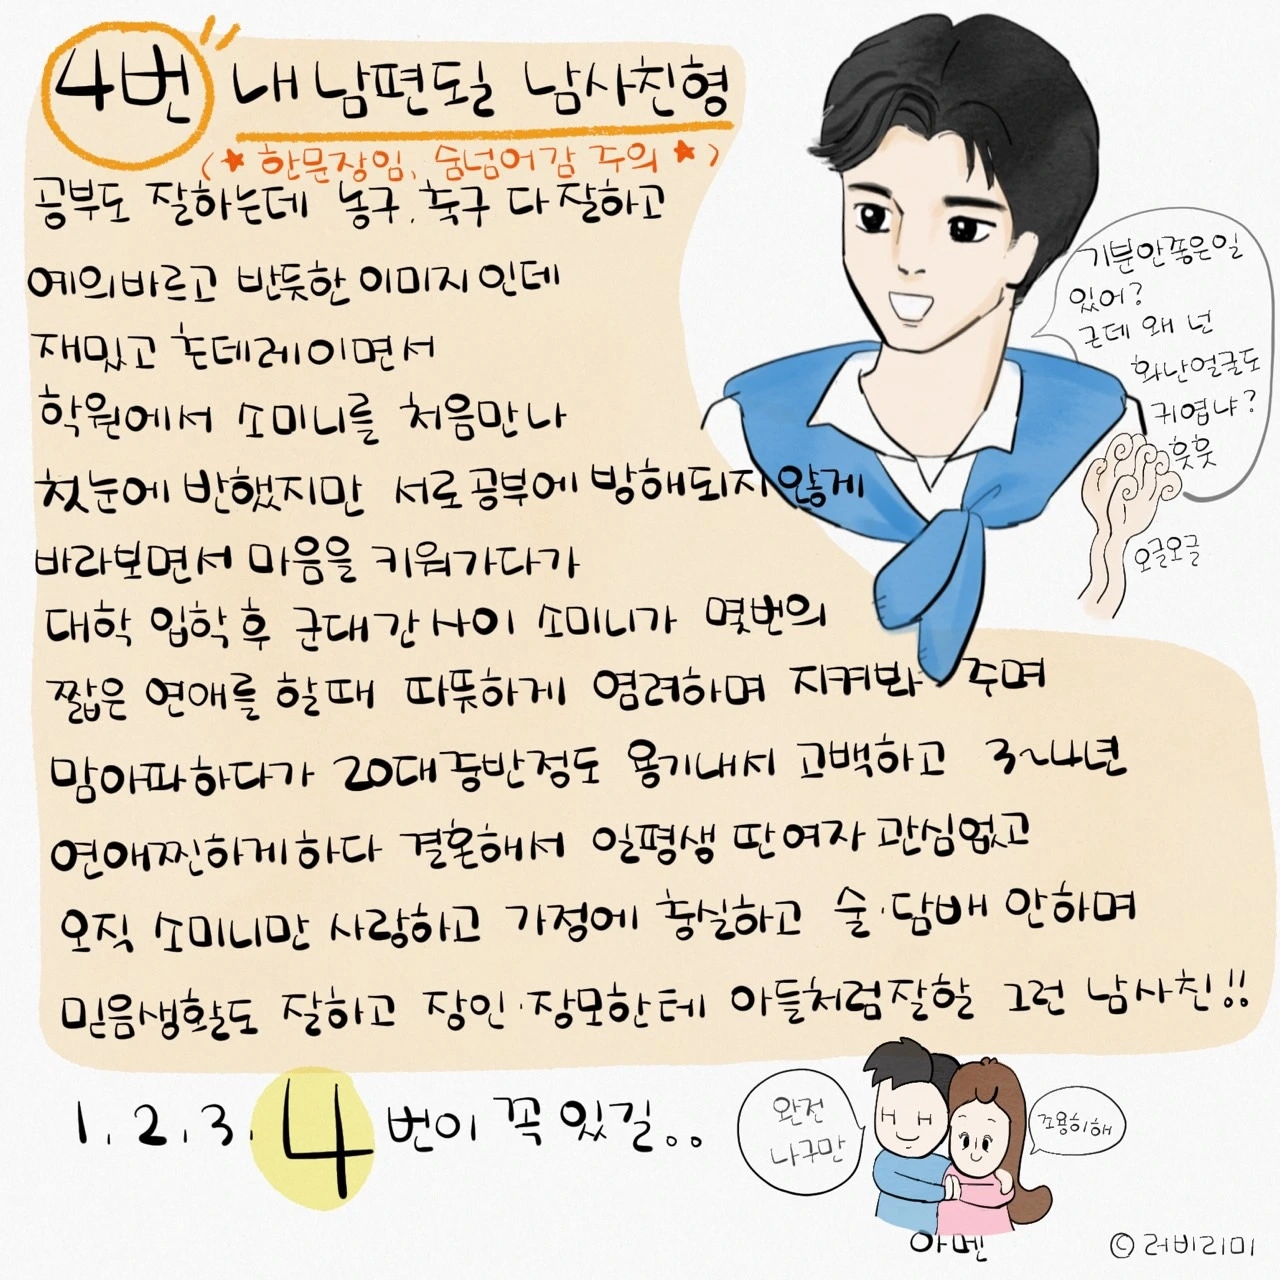 4번 내 남편도실 남사친형
(★ 한문장임, 숨넘어감 주의 ★)
공부도 잘하는데 농구, 축구 다 잘하고
예의바르고 반듯한 이미지인데
재밌고 츤데레이면서
학원에서 소미니를 처음만나
첫눈에 반했지만 서로 공부에 방해되지 않게
바라보면서 마음을 키워가다가
대학 입학 후 군대간 사이 소미니가 몇번의
짧은 연애를 할때 따뜻하게 염려하며 지켜봐 주며
맘아파하다가 20대중반정도 용기내서 고백하고 3~4년
연애찐하게하다 결혼해서 일평생 딴여자 관심없고
오직 소미니만 사랑하고 가정에 충실하고 술·담배 안하며
믿음생활도 잘하고 장인·장모한테 아들처럼잘할 그런 남사친!!
기분안좋은일
있어?
근데 왜 넌
화난얼굴도
귀엽냐?
흣흣
오글오글
1. 2. 3. 4번이 꼭 있길..
완전
나구만
조용히해
아멘
© 러비리미